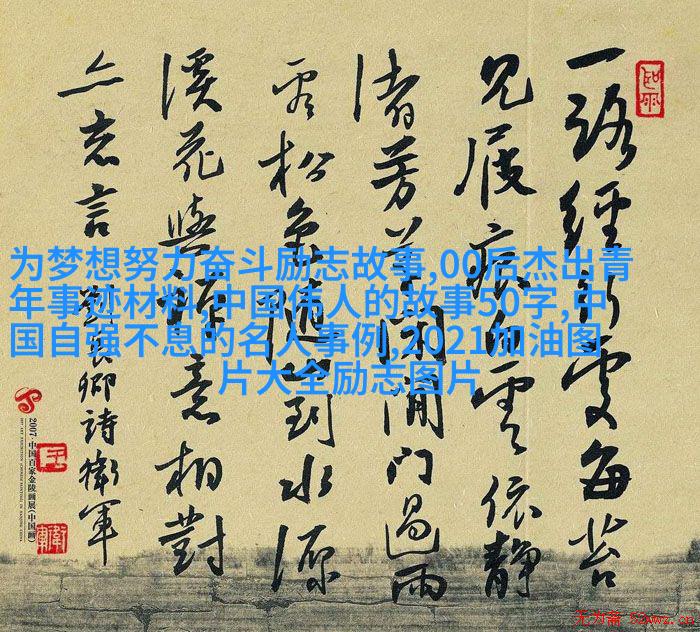 一路經行處每苔
見履痕白雲依靜
渚芳草閉閒門過雨
看松色隨山到水源
溪花與禪意相對
亦忘言 劉長卿詩衛軍
为梦想努力奋斗励志故事,00后杰出青
年事迹材料,中国伟人的故事50字,中
国自强不息的名人事例,2021加油图
片大全励志图片
2007·中国百家金陵画展(中国画)